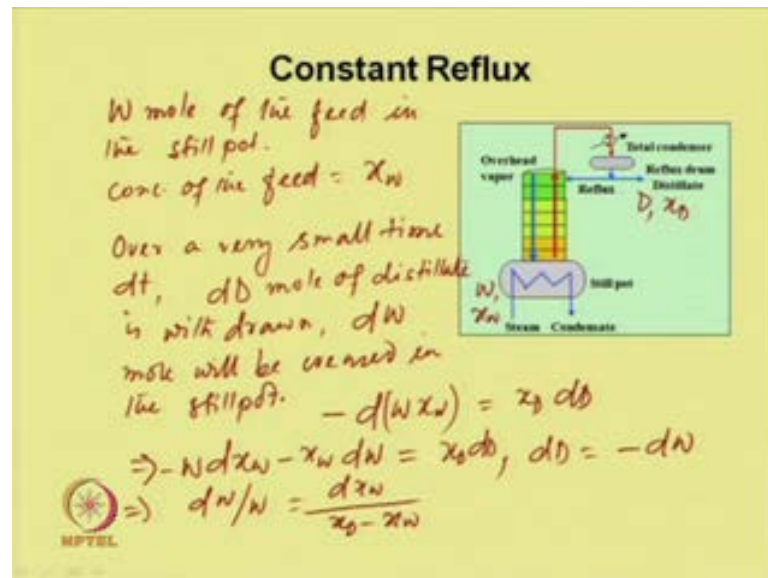 Constant Reflux
W mole of the feed in
the still pot.
conc. of the feed = x_W
Over a very small time
dt, dD mole of distillate
is withdrawn, dW
mole will be in
the stillpot.
-d(W x_W) = x_D dD
⇒ -W dx_W - x_W dW = x_D dD, dD = -dW
⇒ dW/W = dx_W / x_D - x_W
Total condenser
Overhead
vapor
Reflux drum
Reflux
Distillate
D, x_D
W,
x_W
Still pot
Steam Condensate
NPTEL